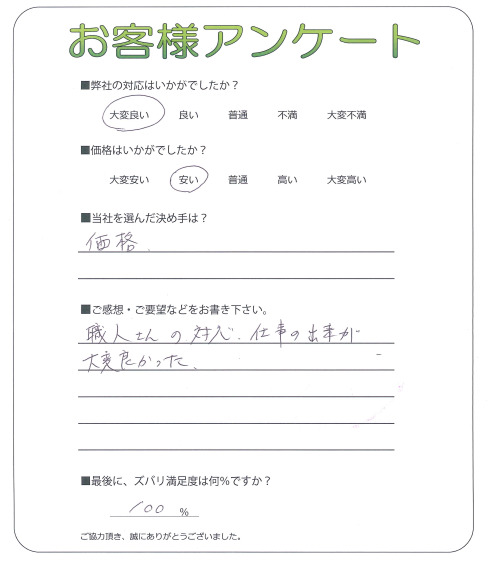 お客様アンケート
■弊社の対応はいかがでしたか？
大変良い 良い 普通 不満 大変不満
■価格はいかがでしたか？
大変安い 安い 普通 高い 大変高い
■当社を選んだ決め手は？
価格.
■ご感想・ご要望などをお書き下さい。
職人さんの対応.仕事の出来が
大変良かった.
■最後に、ズバリ満足度は何％ですか？
100 %
ご協力頂き、誠にありがとうございました。